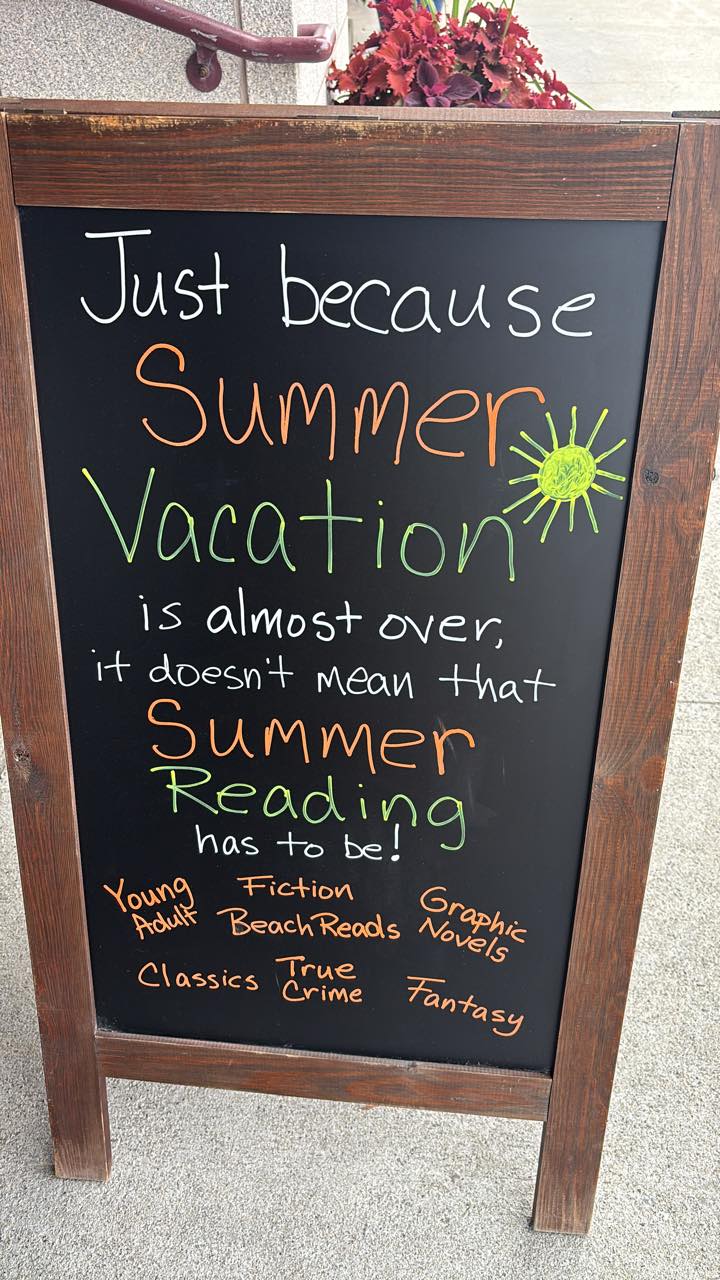 Just because
Summer
Vacation
is almost over,
it doesn't mean that
Summer
Reading
has to be!
Young
Adult
Fiction
Beach Reads
Graphic
Novels
Classics
True
Crime
Fantasy